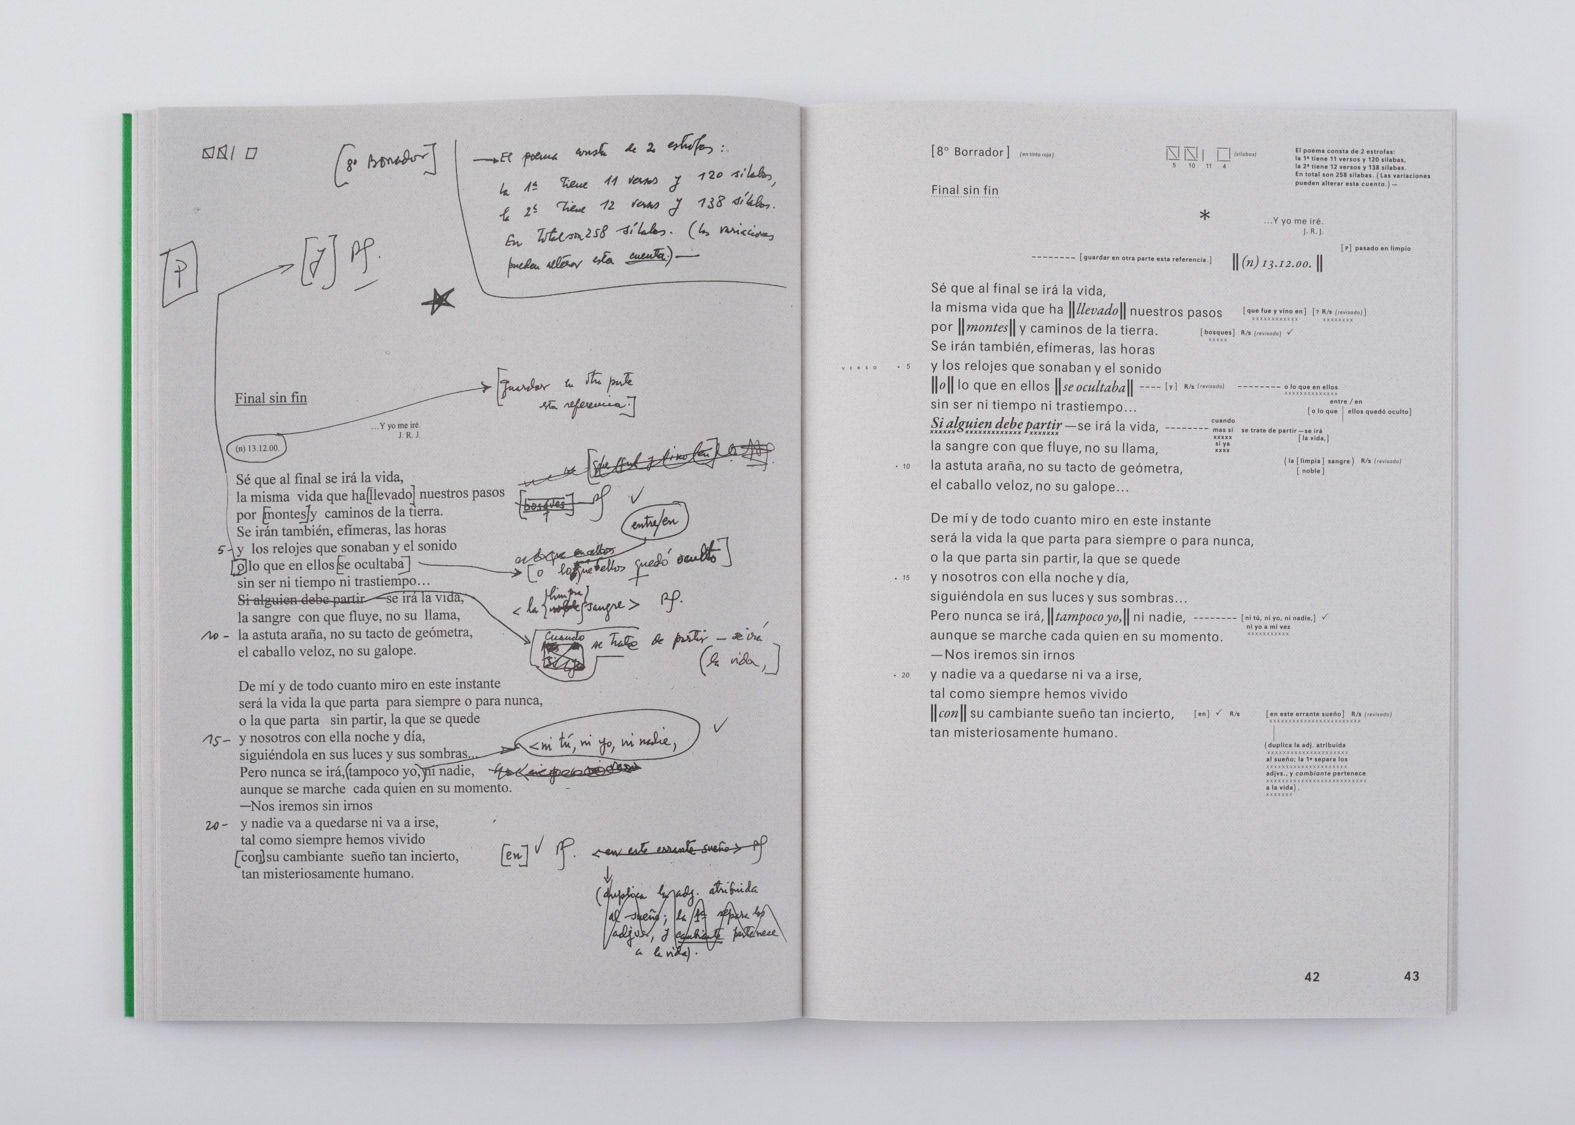 [8º Borrador]
→ El poema consta de 2 estrofas:
la 1ª tiene 11 versos y 120 sílabas,
la 2ª tiene 12 versos y 138 sílabas.
En total son 258 sílabas. (Las variaciones
pueden alterar esta cuenta.)—
P
[J]
[guardar en otra parte
esta referencia.]
Final sin fin
...Y yo me iré.
J. R. J.
(n) 13.12.00.
Sé que al final se irá la vida,
la misma vida que ha [llevado] nuestros pasos
[bosques] ✓
por [montes] y caminos de la tierra.
entre/en
Se irán también, efímeras, las horas
5- y los relojes que sonaban y el sonido
[o] lo que en ellos [se ocultaba]
[o lo que ellos quedó oculto]
sin ser ni tiempo ni trastiempo...
Si alguien debe partir —se irá la vida,
<la {limpia} sangre>
la sangre con que fluye, no su llama,
10- la astuta araña, no su tacto de geómetra,
cuando se trate de partir – se irá
(la vida,]
el caballo veloz, no su galope.
De mí y de todo cuanto miro en este instante
será la vida la que parta para siempre o para nunca,
o la que parta sin partir, la que se quede
15- y nosotros con ella noche y día,
<ni tú, ni yo, ni nadie, ✓
siguiéndola en sus luces y sus sombras...
Pero nunca se irá, (tampoco yo,) ni nadie,
aunque se marche cada quien en su momento.
—Nos iremos sin irnos
20- y nadie va a quedarse ni va a irse,
tal como siempre hemos vivido
[con] su cambiante sueño tan incierto,
[en] ✓
<en este errante sueño>
tan misteriosamente humano.
(duplica la adj. atribuida
al sueño; la 1ª separa los
adjvs., y cambiante pertenece
a la vida).
[8º Borrador] (en tinta roja)
(sílabas)
5 10 11 4
El poema consta de 2 estrofas:
la 1ª tiene 11 versos y 120 sílabas,
la 2ª tiene 12 versos y 138 sílabas.
En total son 258 sílabas. (Las variaciones
pueden alterar esta cuenta.)—
Final sin fin
*
...Y yo me iré.
J. R. J.
[P] pasado en limpio
-------- [guardar en otra parte esta referencia.] ||(n) 13.12.00.||
Sé que al final se irá la vida,
la misma vida que ha ||llevado|| nuestros pasos [que fue y vino en] [? R/s (revisado)]
xxxxxxxxxxxx xxxxxxxx
por ||montes|| y caminos de la tierra. [bosques] R/s (revisado) ✓
xxxxx
Se irán también, efímeras, las horas
VERSO • 5 y los relojes que sonaban y el sonido
||o|| lo que en ellos ||se ocultaba|| ---- [y] R/s (revisado) -------- o lo que en ellos
xxxxxxxxxxxxx
entre / en
sin ser ni tiempo ni trastiempo... [o lo que | ellos quedó oculto]
cuando
Si alguien debe partir —se irá la vida, -------- mas si se trate de partir —se irá
xxxxx [la vida,]
si ya
xxxx
la sangre con que fluye, no su llama,
• 10 la astuta araña, no su tacto de geómetra, (la [limpia] sangre) R/s (revisado)
[noble]
el caballo veloz, no su galope...
De mí y de todo cuanto miro en este instante
será la vida la que parta para siempre o para nunca,
o la que parta sin partir, la que se quede
• 15 y nosotros con ella noche y día,
siguiéndola en sus luces y sus sombras...
Pero nunca se irá, ||tampoco yo,|| ni nadie, -------- [ni tú, ni yo, ni nadie,] ✓
ni yo a mi vez
xxxxxxxxxxx
aunque se marche cada quien en su momento.
—Nos iremos sin irnos
• 20 y nadie va a quedarse ni va a irse,
tal como siempre hemos vivido
||con|| su cambiante sueño tan incierto, [en] ✓ R/s [en este errante sueño] R/s (revisado)
tan misteriosamente humano.
(duplica la adj. atribuida
al sueño; la 1ª separa los
adjvs., y cambiante pertenece
a la vida).
42 43